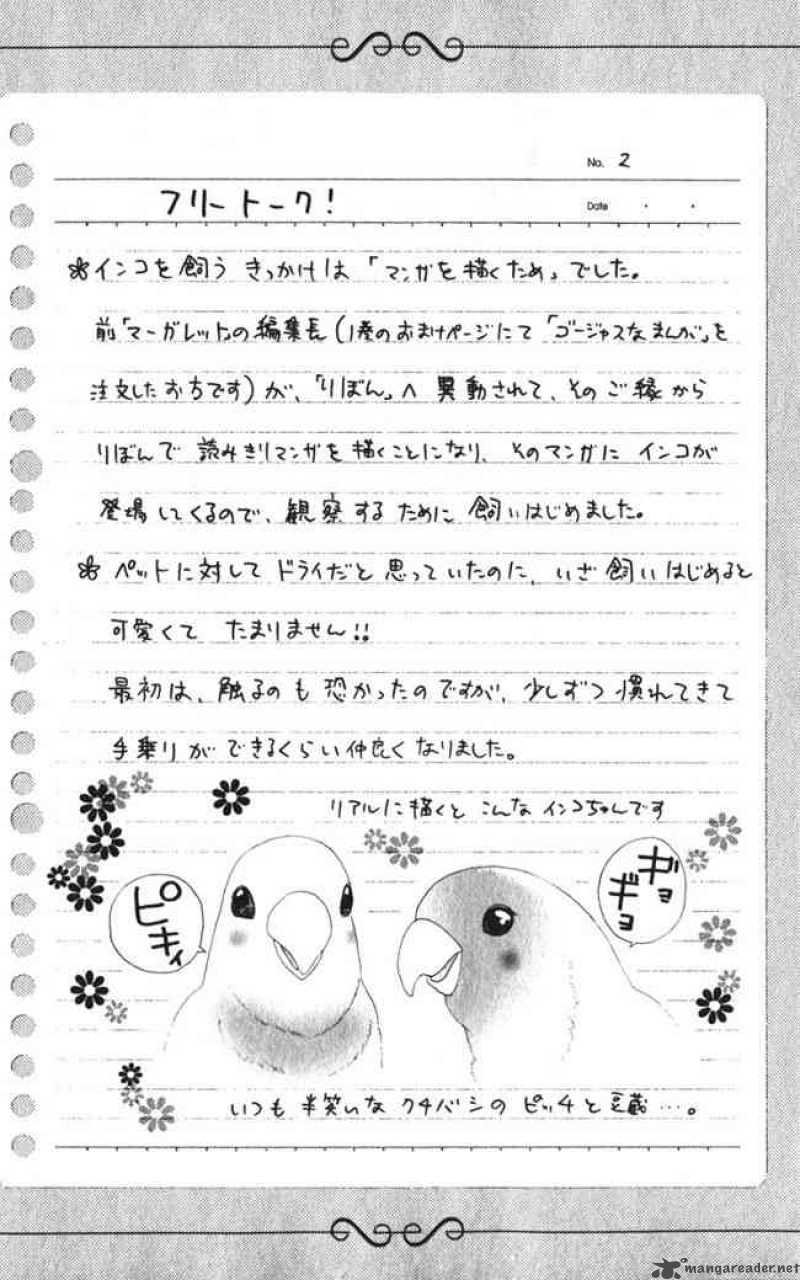 No. 2
フリートーク!
Date ・ ・
❀インコを飼う きっかけは「マンガを描くため」でした。
前「マーガレット」の編集長(1巻のおまけページにて「ゴージャスなまんが」を
注文したお方です)が、「りぼん」へ 異動されて、そのご縁から
りぼんで 読みきりマンガを描くことになり、そのマンガに インコが
登場してくるので、観察するために 飼いはじめました。
❀ ペットに対して ドライだと思っていたのに、いざ飼いはじめると
可愛くて たまりません!!
最初は、触るのも恐かったのですが、少しずつ慣れてきて
手乗りができるくらい仲良くなりました。
リアルに描くと こんな インコちゃんです
ピキィ
ギョギョ
いつも半笑いな クチバシの ピッチと豆蔵…。
mangareader.net